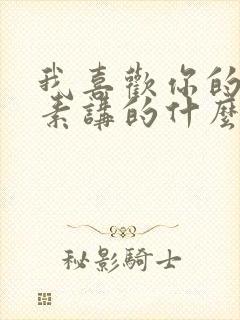 我喜歡你的
素講的什麼
秘影騎士